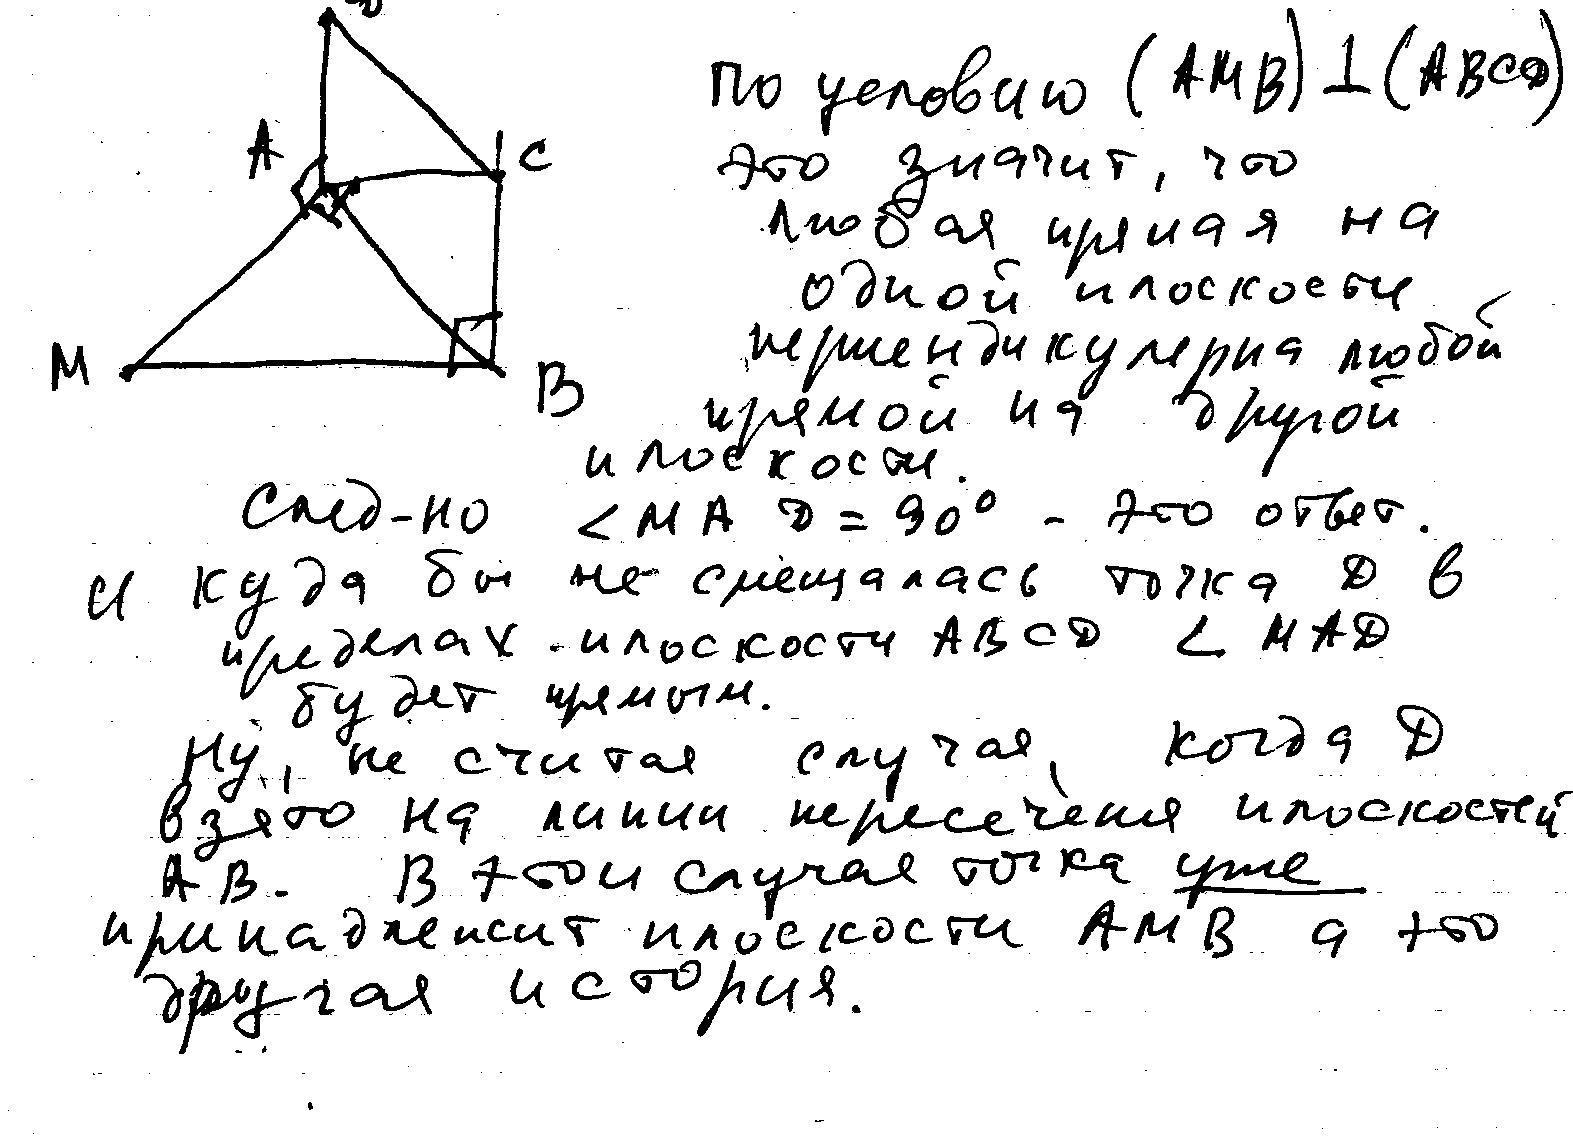 D
A
C
M
B
По условию (AMB)⊥(ABCD)
это значит, что
любая прямая на
одной плоскости
перпендикулярна любой
прямой на другой
плоскости.
След-но <MAD=90° - это ответ.
И куда бы не смещалась точка D в
пределах плоскости ABCD <MAD
будет прямым.
Ну, не считая случая, когда D
взято на линии пересечения плоскостей
AB. В этом случае точка уже
принадлежит плоскости AMB а это
другая история.